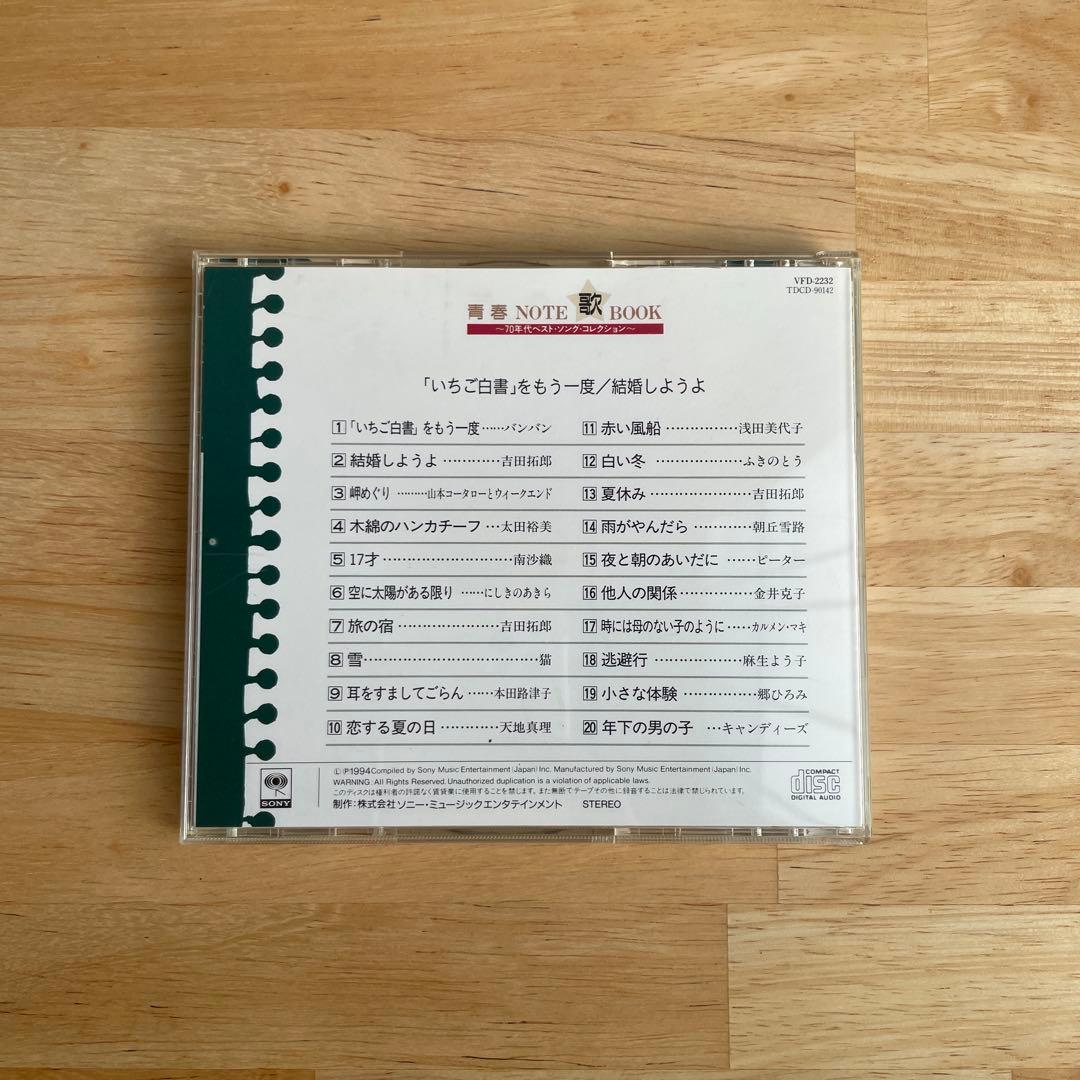 VFD-2232
TDCD-90142
青春 NOTE 歌 BOOK
〜70年代ベスト・ソング・コレクション〜
「いちご白書」をもう一度／結婚しようよ
1 「いちご白書」をもう一度……バンバン
2 結婚しようよ…………吉田拓郎
3 岬めぐり………山本コータローとウィークエンド
4 木綿のハンカチーフ…太田裕美
5 17才……………………南沙織
6 空に太陽がある限り……にしきのあきら
7 旅の宿………………吉田拓郎
8 雪……………………………猫
9 耳をすましてごらん……本田路津子
10 恋する夏の日…………天地真理
11 赤い風船……………浅田美代子
12 白い冬………………ふきのとう
13 夏休み…………………吉田拓郎
14 雨がやんだら…………朝丘雪路
15 夜と朝のあいだに……ピーター
16 他人の関係……………金井克子
17 時には母のない子のように……カルメン・マキ
18 逃避行………………麻生よう子
19 小さな体験……………郷ひろみ
20 年下の男の子…キャンディーズ
SONY
Ⓛ Ⓟ 1994 Compiled by Sony Music Entertainment (Japan) Inc. Manufactured by Sony Music Entertainment (Japan) Inc.
WARNING: All Rights Reserved. Unauthorized duplication is a violation of applicable laws.
このディスクは権利者の許諾なく賃貸業に使用することを禁じます。また無断でテープその他に録音することは法律で禁じられています。
制作：株式会社ソニー・ミュージックエンタテインメント STEREO
COMPACT
disc
DIGITAL AUDIO